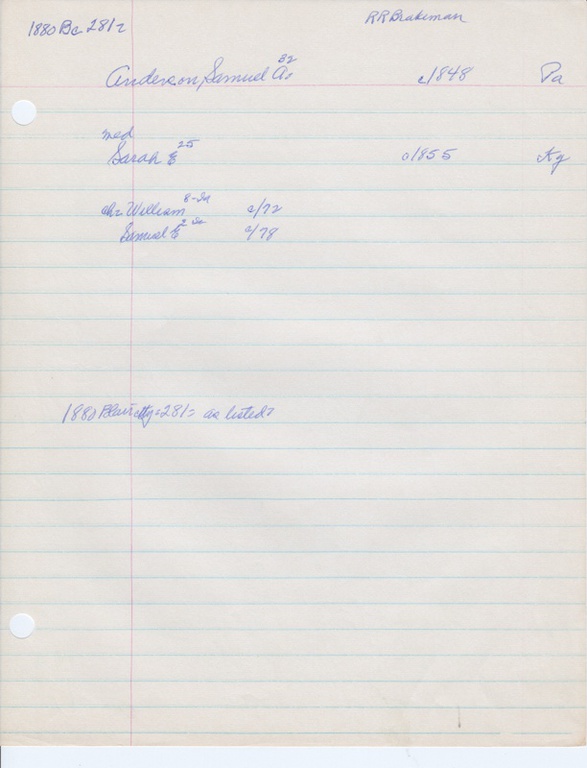 RR Brakeman
1880 Bc 281z
Anderson, Samuel A 32 c1848 Pa
med
Sarah E 25 c1855 Ky
chr. William 8 c/72
Samuel E 2 c/78
1880 Blair cty 281 as listed